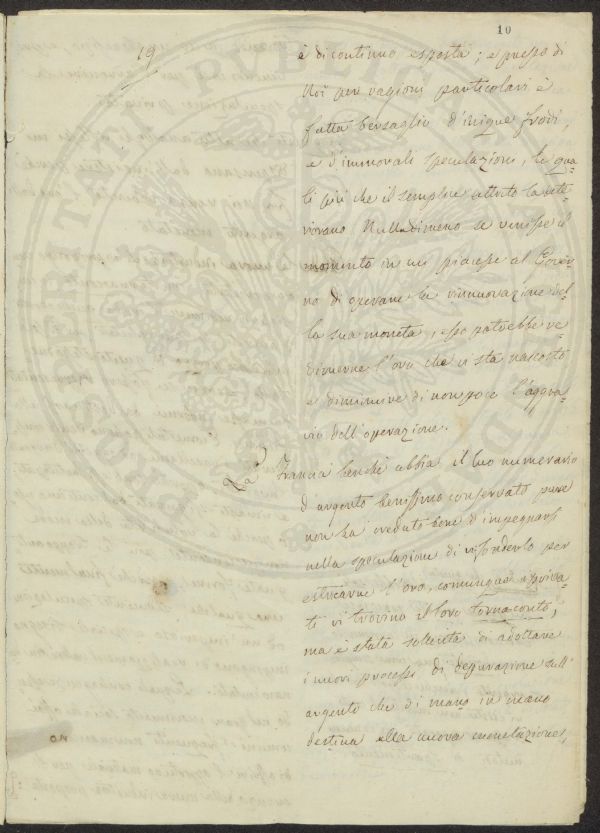 10
19
è di continuo esposta; e presso di
Noi per ragioni particolari è
fatta bersaglio d'inique frodi,
e d'immorali speculazioni, le qua=
li più che il semplice attrito la dete=
riorano. Nulladimeno se venisse il
momento in cui piacesse al Gover=
no di operare la rinnovazione del=
la sua moneta, esso potrebbe re=
dimerne l'oro che vi sta nascosto
e diminuire di non poco l'aggra=
vio dell'operazione.
La Francia benchè abbia il suo numerario
d'argento benissimo conservato pure
non ha creduto bene d'impegnarsi
nella speculazione di rifonderlo per
estrarne l'oro, comunque i priva=
ti vi trovino il loro tornaconto;
ma è stata sollecita di adottare
i nuovi processi di depurazione sull'
argento che di mano in mano
destina alla nuova monetazione,
PROSPERITATI PUBLICAE